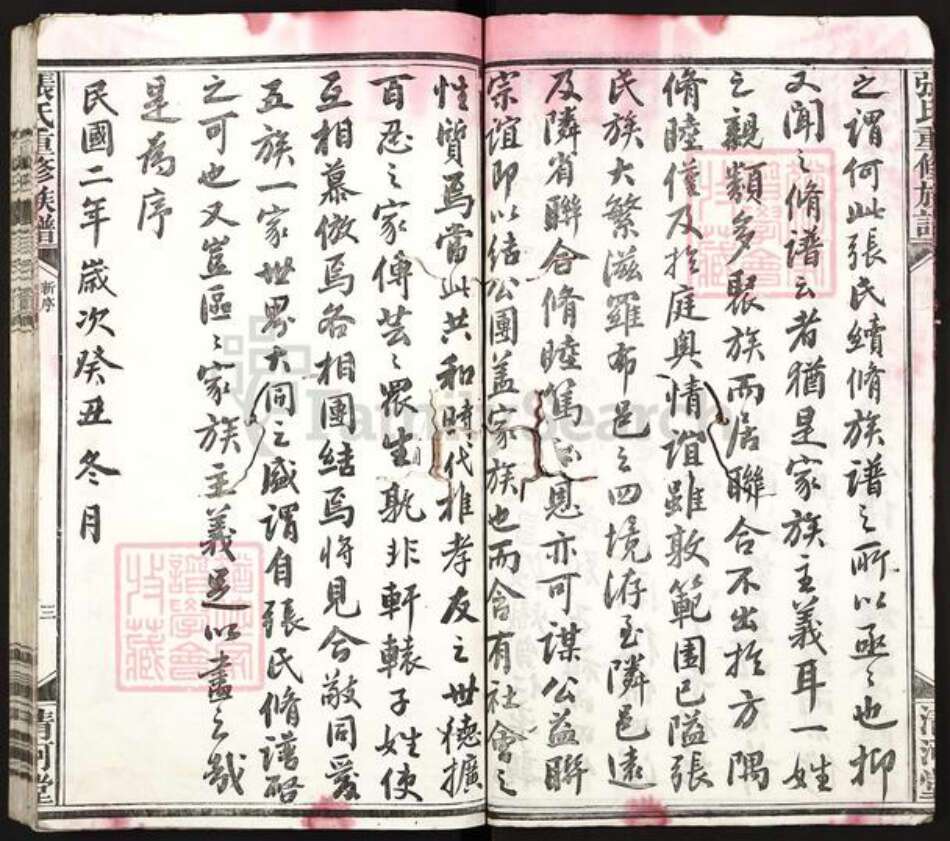 張氏重修族譜
清河堂
之謂何此張氏續脩族譜之所以亟〻也抑
又聞之脩譜云者猶是家族主義耳一姓
之親類多聚族而居聯合不出於方隅
脩睦僅及於庭奧情誼雖敦範圍已隘張
民族大繁滋羅布邑之四境游至隣邑遠
及隣省聯合脩睦篤恩亦可謀公益聯
宗誼即以結公團蓋家族也而含有社會之
性質焉當此共和時代推孝友之世德擴
百忍之家傳芸〻眾生孰非軒轅子姓使
互相慕倣焉各相團結焉將見合敬同愛
五族一家世界大同之盛謂自張氏脩譜啓
之可也又豈區〻家族主義足以畫之哉
是為序
民國二年歲次癸丑冬月
張氏重修族譜
新序
三
清河堂
譜學會
收藏
FamilySearch